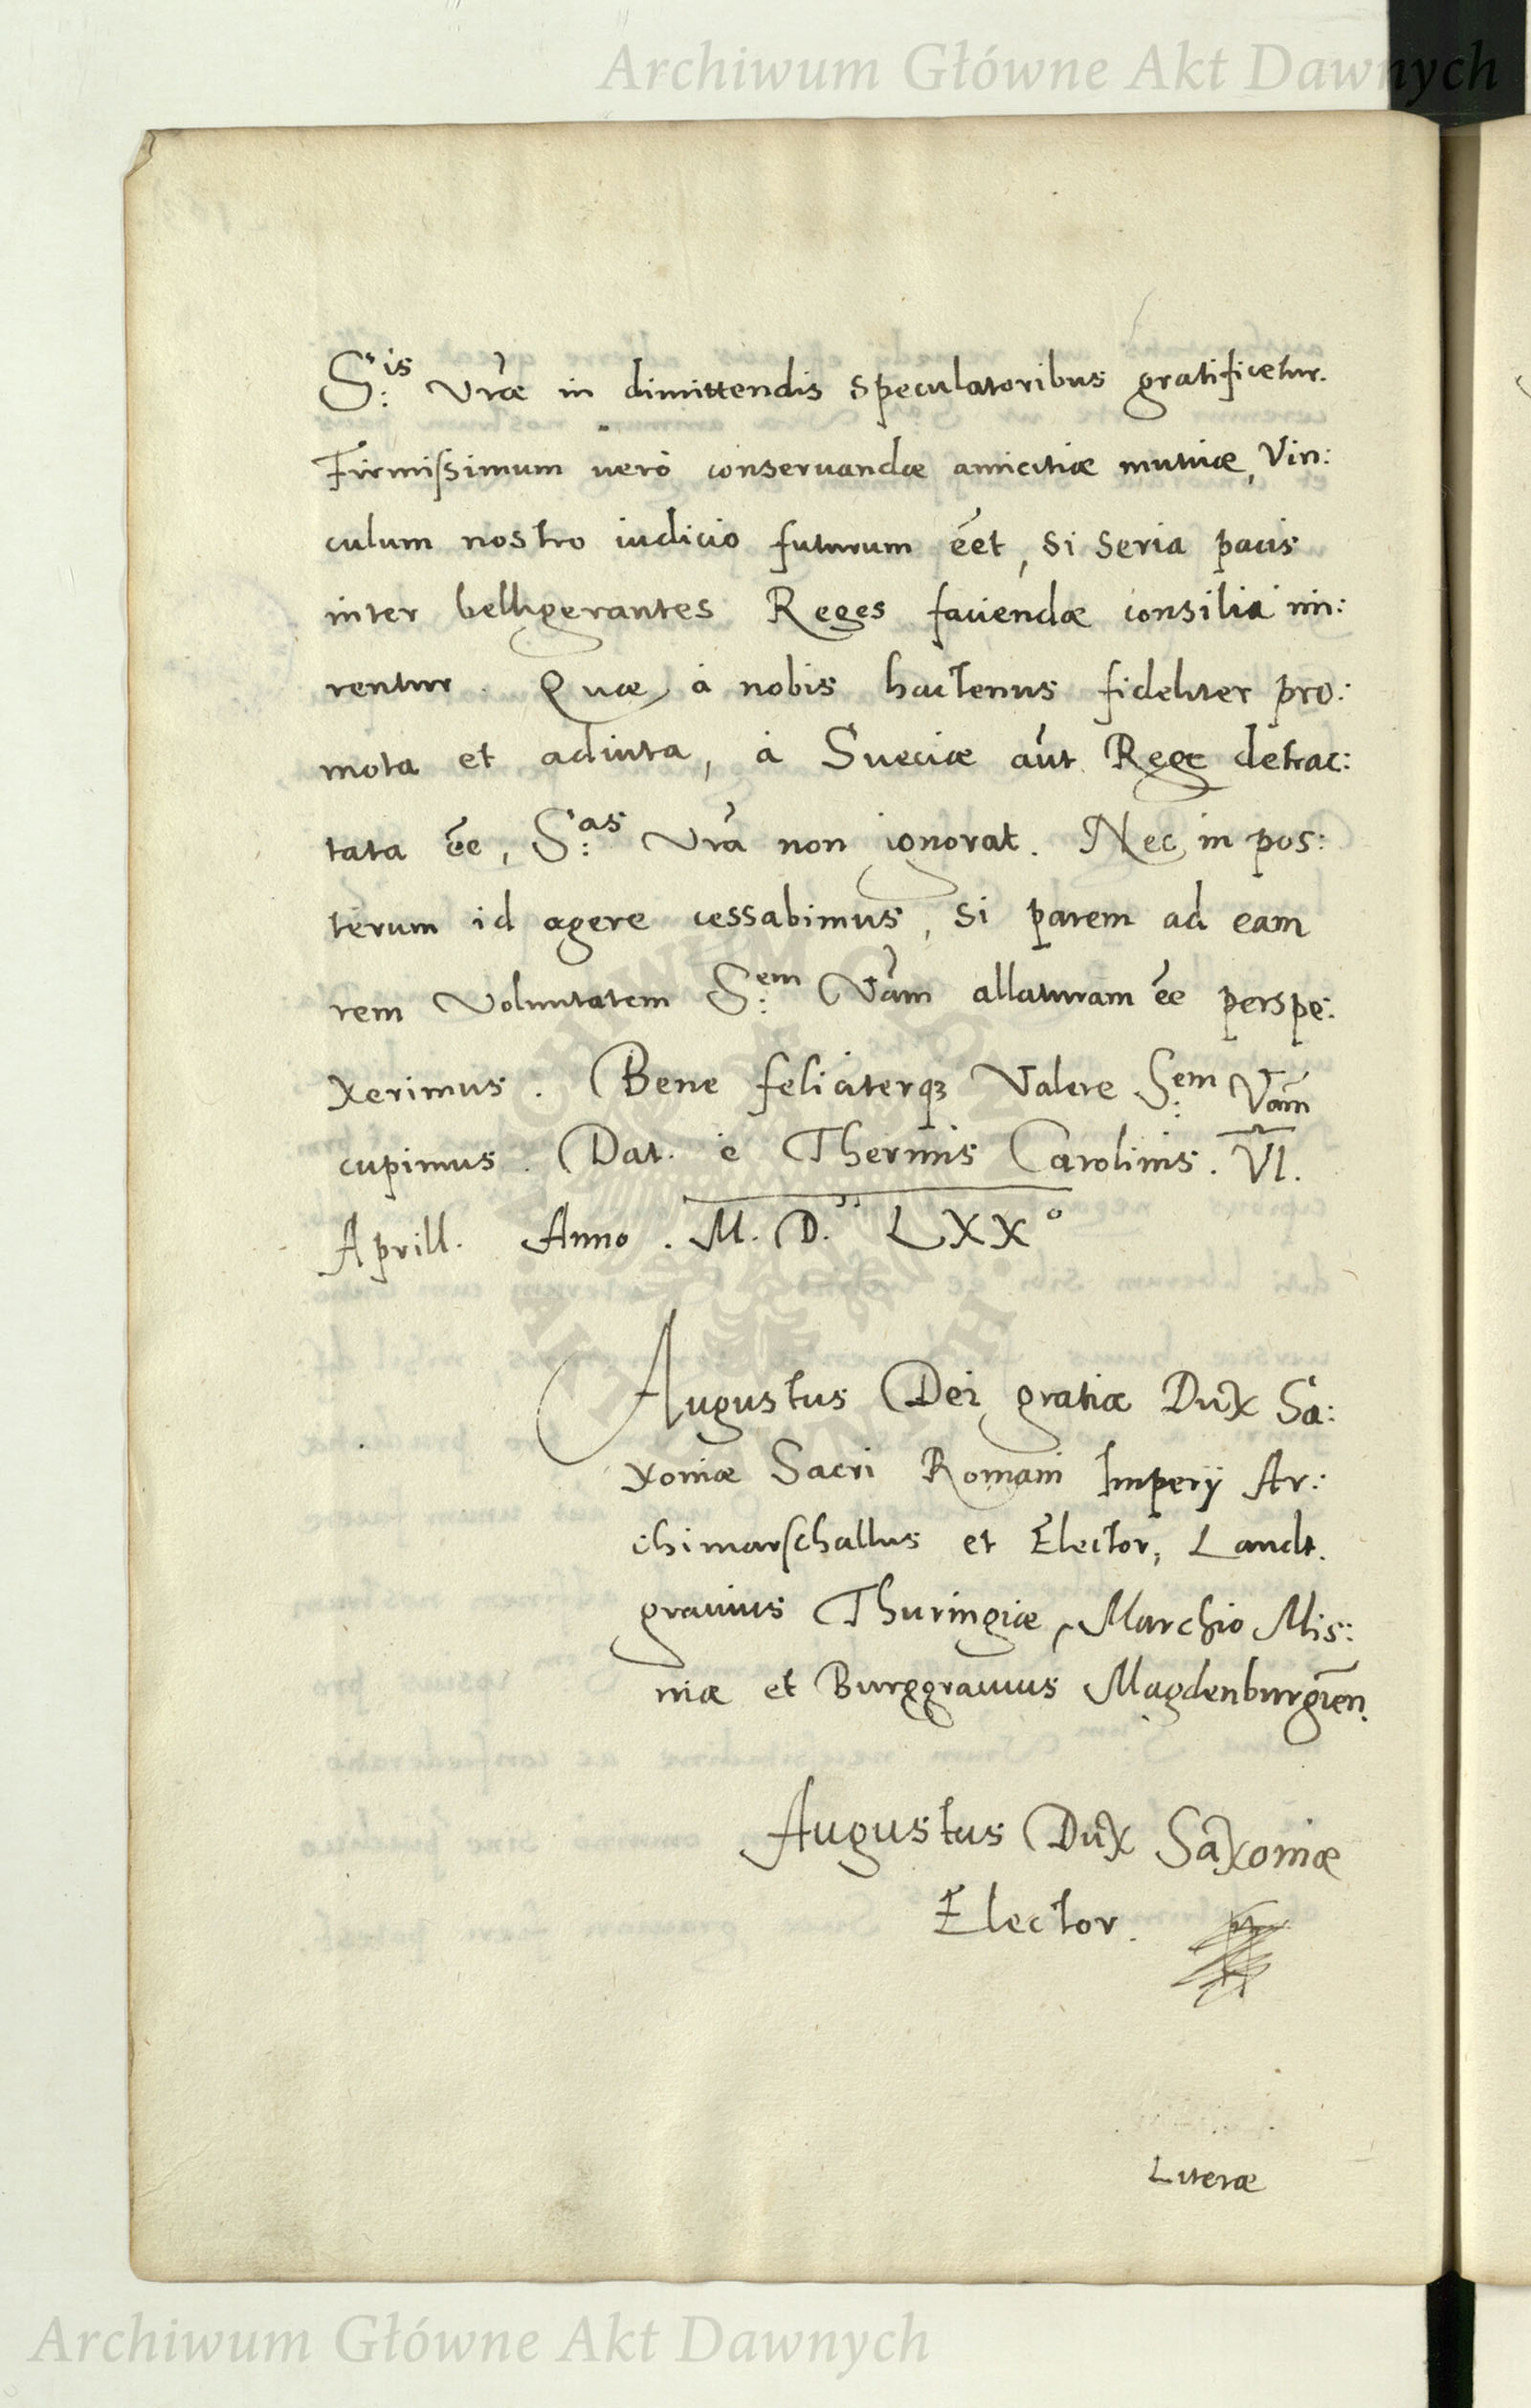 Archiwum Główne Akt Dawnych
S:is Vrae in dimittendis speculatoribus gratificetur.
Firmissimum verò conservandae amicitiae mutuae, Vin:
culum nostro iudicio futurum eēt, si seria pacis
inter belligerantes Reges faciendae consilia ini:
rentur. Quae, à nobis hactenus fideliter pro:
mota et adiuta, à Sueciae aut Rege detrac:
tata eē, S:as Vra non ignorat. Nec in pos:
terum id agere cessabimus, si parem ad eam
rem Voluntatem S:em Vam allaturam eē perspe:
xerimus. Bene feliciterq3 Valere S:em Vam
cupimus. Dat. è Thermis Carolinis. VI.
Aprill. Anno. M. D. LXX°
Augustus Dei gratiae Dux Sa:
xoniae Sacri Romani Imperij Ar:
chimarschallus et Elector, Landt.
gravius Thuringiae, Marchio Mis:
niae et Burggravius Magdenburgien.
Augustus Dux Saxoniae
Elector.
Literae
Archiwum Główne Akt Dawnych